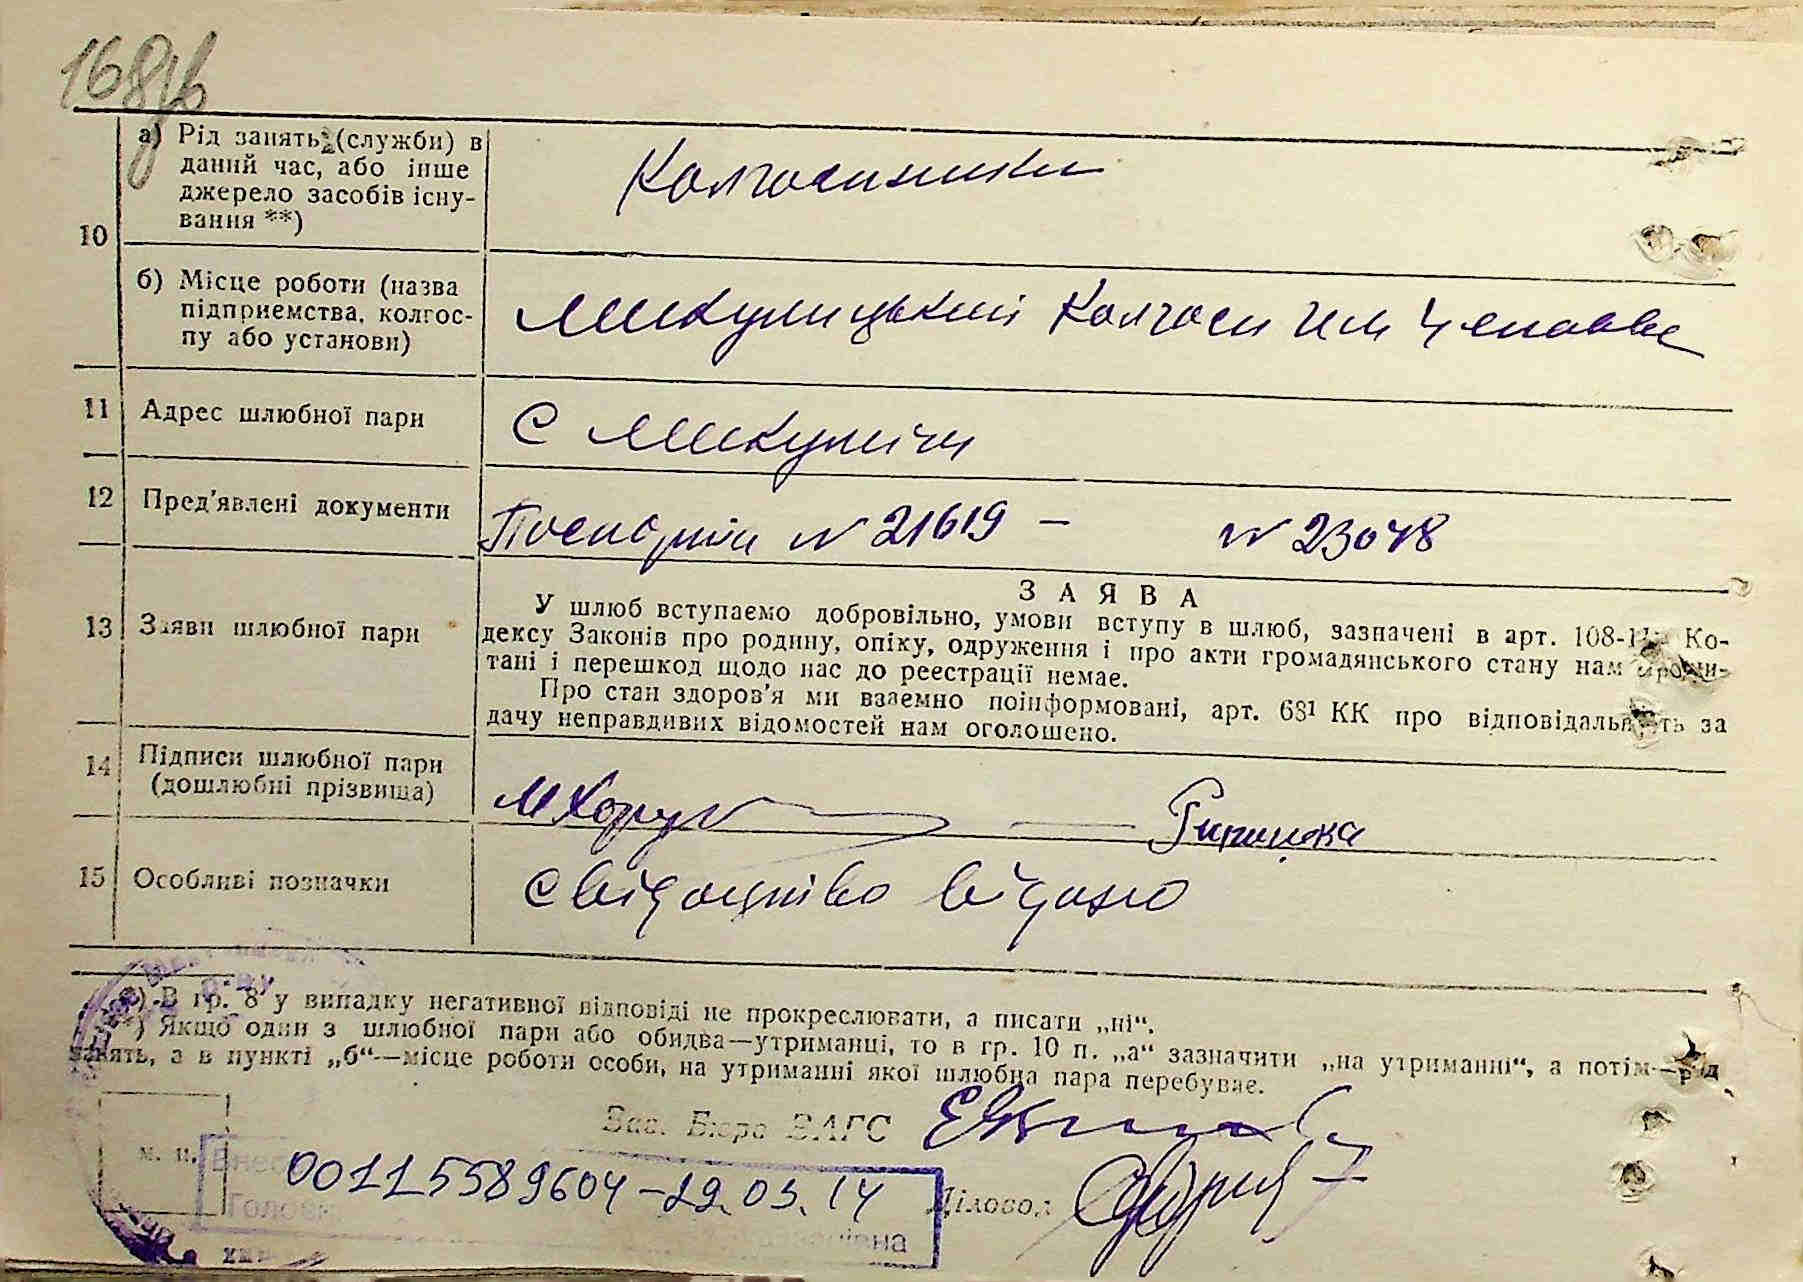 168зв
10
а) Рід занять (служби) в
даний час, або інше
джерело засобів існу-
вання **)
Колгоспники
б) Місце роботи (назва
підприємства, колгос-
пу або установи)
Микулицький Колгосп им Чапаєва
11 Адрес шлюбної пари
С Микуличи
12 Пред'явлені документи
Паспорти № 21619 — № 23048
13 Заяви шлюбної пари
ЗАЯВА
У шлюб вступаємо добровільно, умови вступу в шлюб, зазначені в арт. Ко-
дексу Законів про родину, опіку, одруження і про акти громадянського стану нам
тані і перешкод щодо нас до реєстрації немає.
Про стан здоров'я ми взаємно поінформовані, арт. 68¹ КК про відповідальність за
дачу неправдивих відомостей нам оголошено.
14 Підписи шлюбної пари
(дошлюбні прізвища)
15 Особливі позначки
Свідоцтво видано
*) В гр. 8 у випадку негативної відповіді не прокреслювати, а писати „ні“.
**) Якщо один з шлюбної пари або обидва—утриманці, то в гр. 10 п. „а“ зазначити „на утриманні“, а потім—рід
занять, а в пункті „б“—місце роботи особи, на утриманні якої шлюбна пара перебуває.
Зав. Бюро ЗАГС
м. п.
00115589604-29.05.14
Діловод